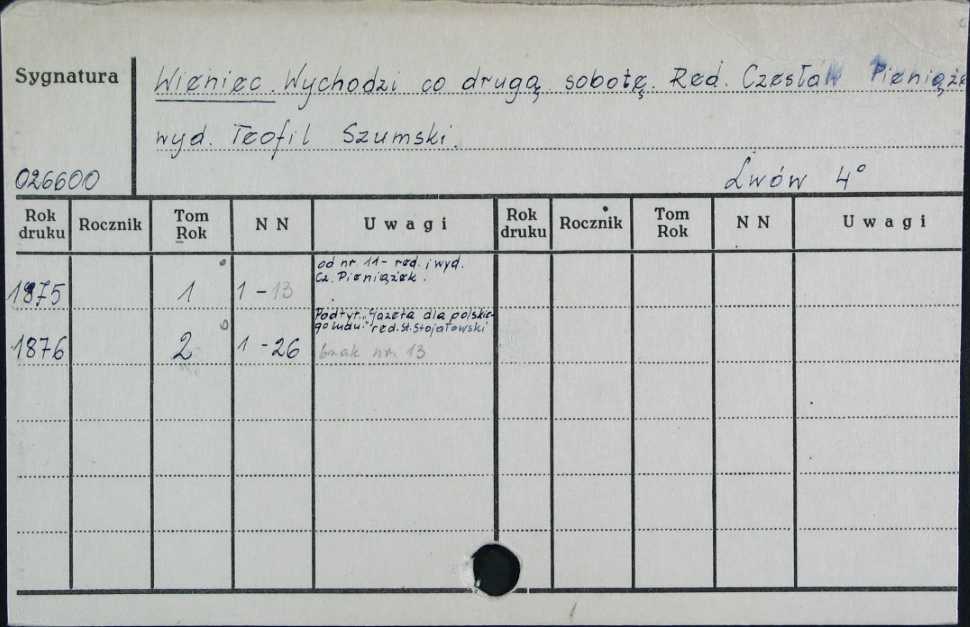 Sygnatura
Wieniec. Wychodzi co drugą sobotę. Red. Czesław Pieniąże
wyd. Teofil Szumski.
026600
Lwów 4°
Rok druku Rocznik Tom Rok N N Uwagi Rok druku Rocznik Tom Rok N N Uwagi
od nr 11- red. i wyd.
Cz. Pieniążek.
1875 1 1-13
Podtyt. "Gazeta dla polskie-
go ludu." red. St. Stojałowski
1876 2 1-26 brak nru 13